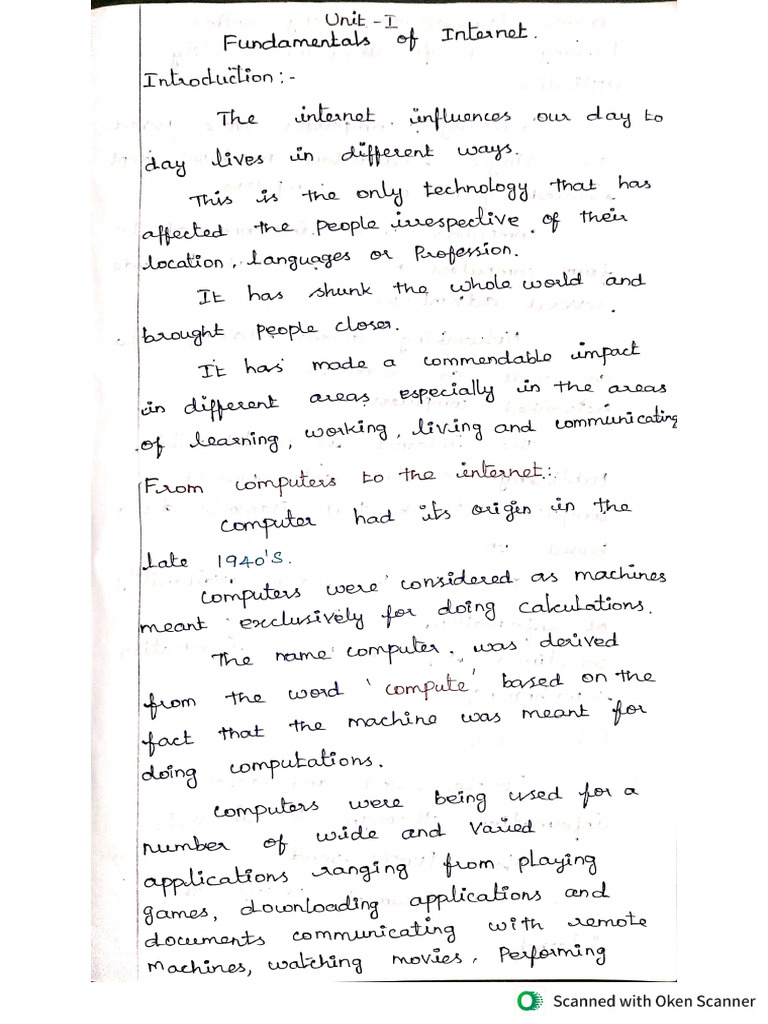 Unit - I
Fundamentals of Internet.
Introduction:-
The internet influences our day to
day lives in different ways.
This is the only technology that has
affected the people irrespective of their
location, languages or Profession.
It has shunk the whole world and
brought people closer.
It has made a commendable impact
in different areas especially in the areas
of learning, working, living and communicating
From computers to the internet:
computer had its origin in the
late 1940's.
Computers were considered as machines
meant exclusively for doing calculations.
The name computer was derived
from the word 'compute' based on the
fact that the machine was meant for
doing computations.
Computers were being used for a
number of wide and varied
applications ranging from playing
games, downloading applications and
documents communicating with remote
machines, watching movies, Performing
Scanned with Oken Scanner